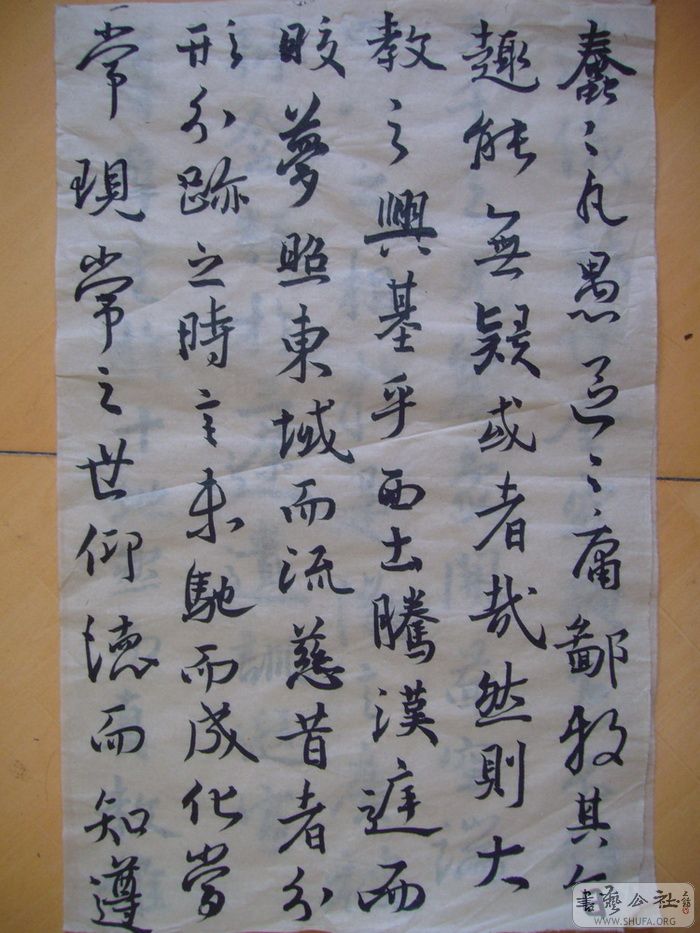 蠢々凡愚區々庸鄙投其旨
趣能無疑或者哉然則大
教之興基乎西土騰漢庭而
皎夢照東域而流慈昔者分
形分跡之時言未馳而成化當
常現常之世仰德而知遵
書藝公社
WWW.SHUFA.ORG